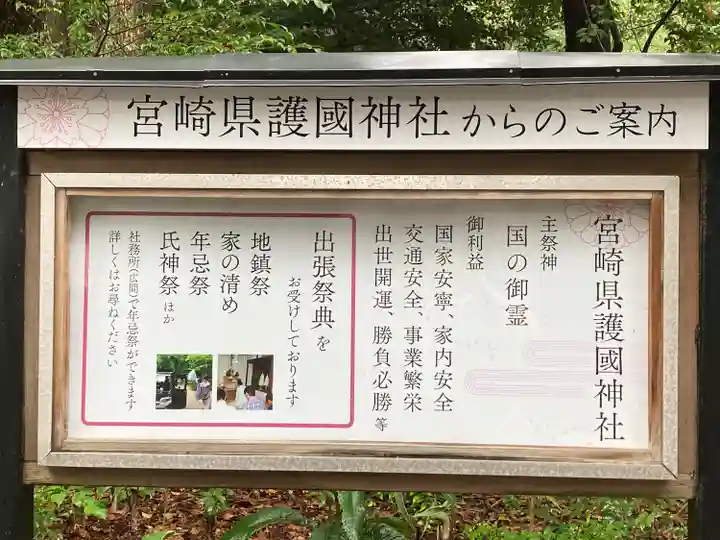 宮崎県護國神社からのご案内
宮崎県護國神社
主祭神
国の御霊
御利益
国家安寧、家内安全
交通安全、事業繁栄
出世開運、勝負必勝 等
出張祭典を
お受けしております
地鎮祭
家の清め
年忌祭
氏神祭 ほか
社務所(広間)で年忌祭ができます
詳しくはお尋ねください